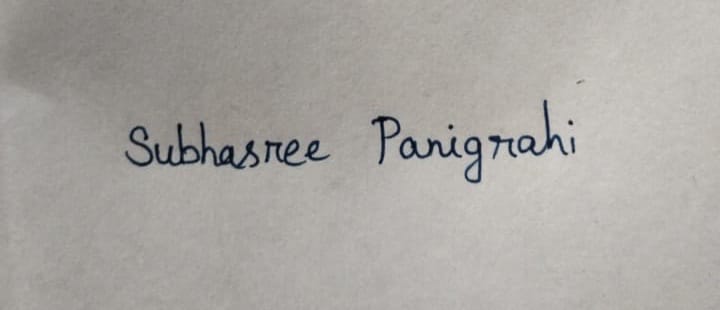 Subhasree Panigrahi